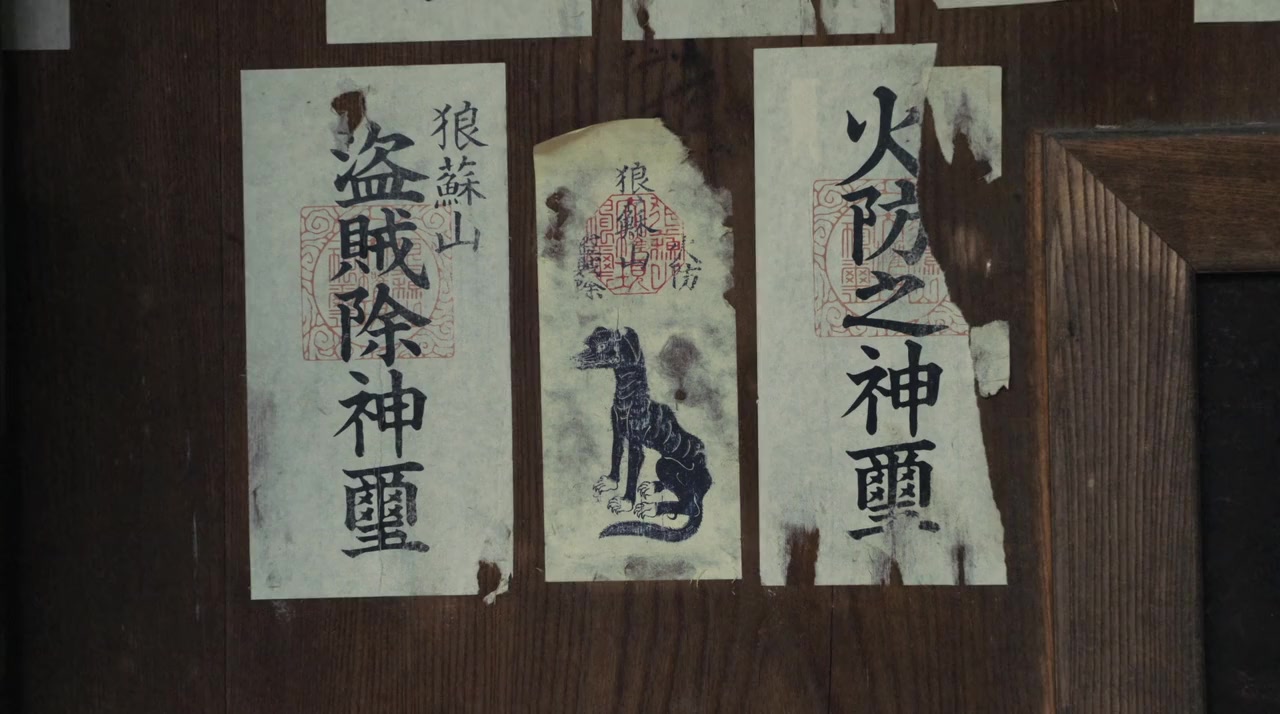 狼蘇山
盗賊除神璽
狼蘇山
火防
盗賊除
火防之神璽